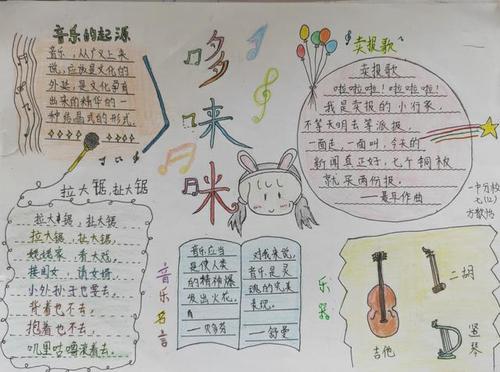 音乐的起源
音乐,从广义上来
说,应该是文化的
外装,是文化孕育
出来的精华的一
种结晶式的形式.
哆
来
咪
卖报歌
卖报歌
啦啦啦!啦啦啦!
我是卖报的小行家,
不等天明去等派报,
一面走,一面叫,今天的
新闻真正好,七个铜板
就买两份报.
——聂耳作曲
一中分校
七(12)
拉大锯,扯大锯
拉大锯,扯大锯
拉大锯,扯大锯,
姥姥家,看大戏,
接闺女,请女婿,
小外孙子也要去,
背着也不去,
抱着也不去,
叽里咕噜滚着去.
音乐名言
音乐应当
是使人类
的精神爆
发出火花,
——贝多芬
对我来说,
音乐是灵
魂的完美
表现,
——舒曼
乐器
吉他
二胡
竖琴